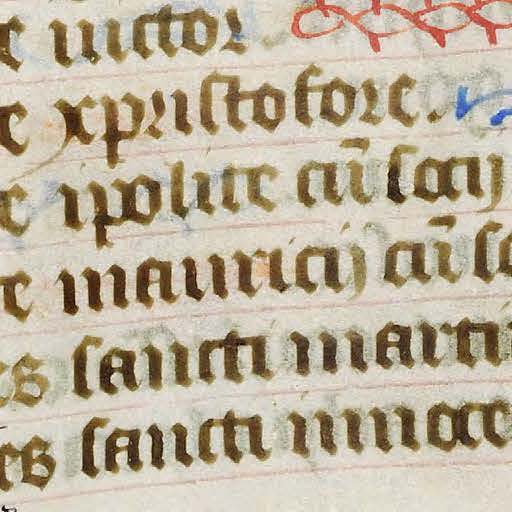 e uictor
e xpristofore.
e ypolite cū socij
e mauricij cū so
es sancti marti
es sancti innoce